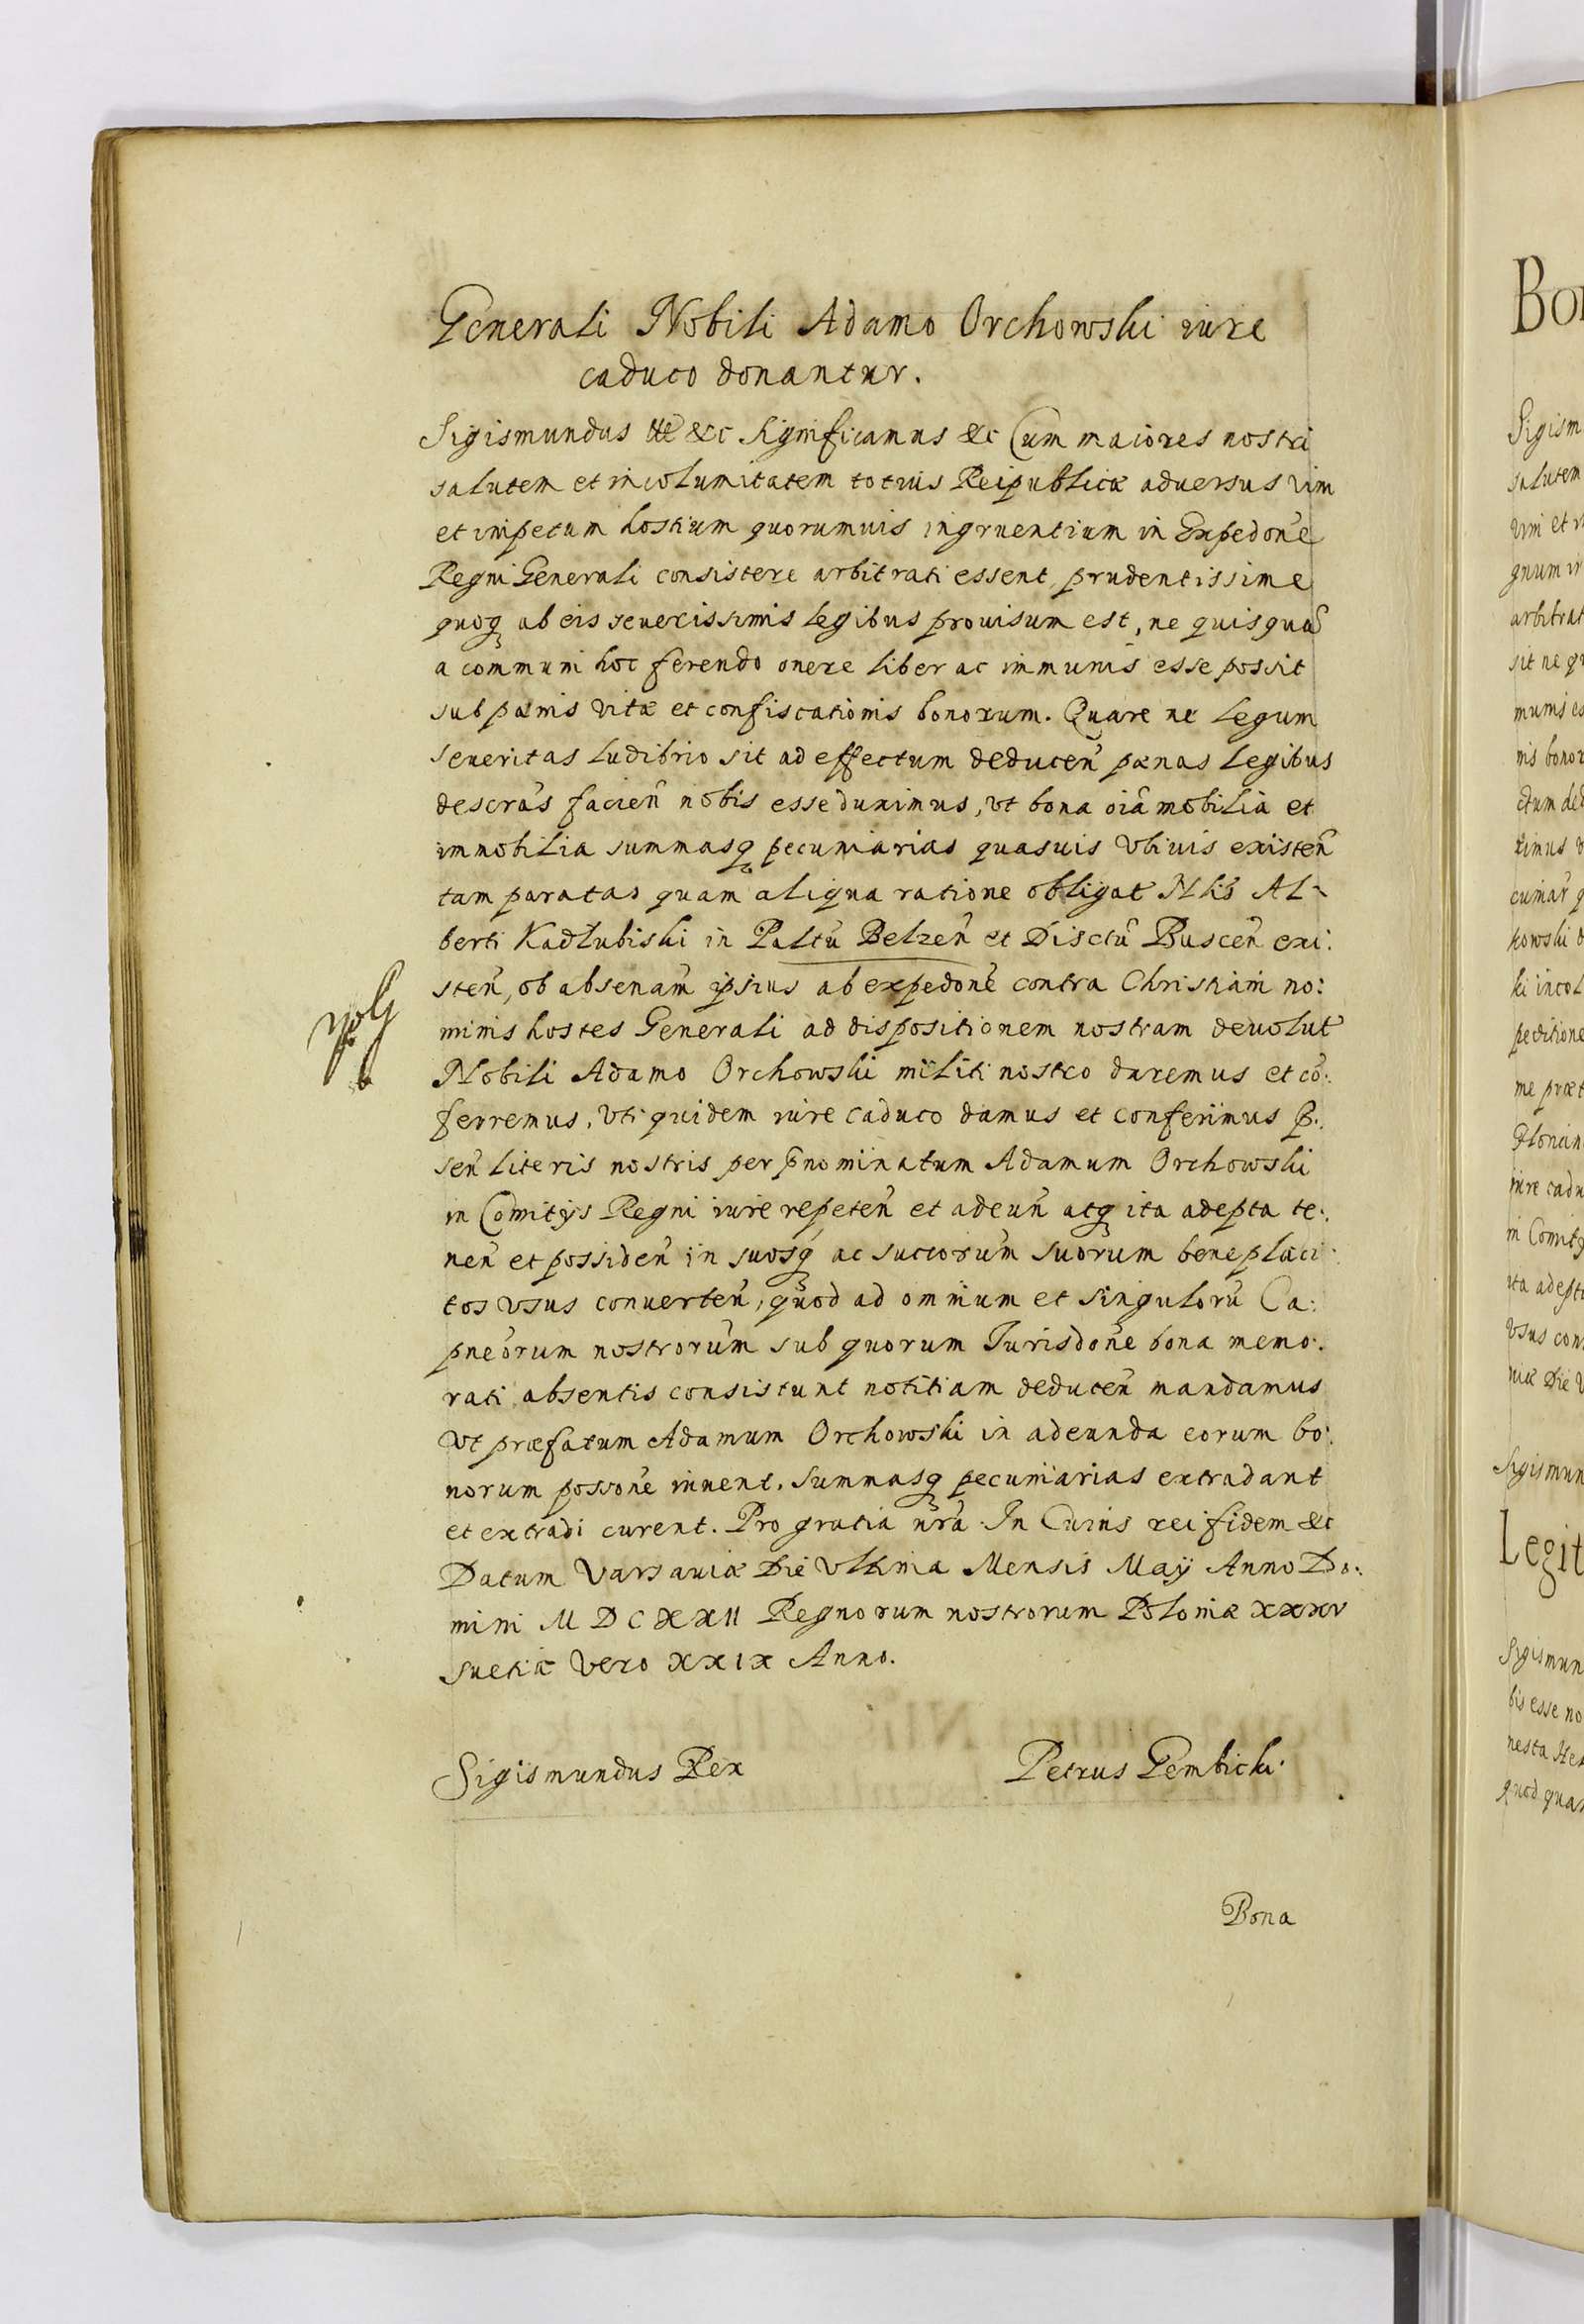 Generali Nobili Adamo Orchowski iure
caduco donantur.
Sigismundus &c Significamus &c Cum maiores nostri
salutem et incolumitatem totius Reipublicæ aduersus vim
et impetum hostium quorumuis ingruentium in Expedoñe
Regni Generali consistere arbitrati essent, prudentissime
quoq ab eis seuerissimis legibus prouisum est, ne quisquã
a communi hoc ferendo onere liber ac immunis esse possit
sub pœnis vitæ et confiscationis bonorum. Quare ne legum
seueritas ludibrio sit ad effectum deduceñ pœnas legibus
descrás facieñ nobis esse duximus, vt bona oiã mobilia et
immobilia summasq pecuniarias quasuis vbiuis existeñ
tam paratas quam aliqua ratione obligat Nlis Al-
berti Kadlubiski in Paltũ Belzeñ et Disctũ Busceñ exi:
steñ, ob absenam̃ ipsius ab expedoñe contra Christiani no:
minis hostes Generali ad dispositionem nostram deuolut
Nobili Adamo Orchowski militi nostro daremus et cõ:
ferremus, vti quidem iure caduco damus et conferimus p̃:
señ literis nostris per p̃nominatum Adamum Orchowski
in Comitijs Regni iure repeteñ et adeuñ atq ita adepta te:
neñ et possideñ in suosq ac succorum̃ suorum beneplaci:
tos vsus conuerteñ, quod ad omnium et singulorũ Ca:
pneorum nostrorum sub quorum Iurisdoñe bona memo:
rati absentis consistunt notitiam deduceñ mandamus
vt præfatum Adamum Orchowski in adeunda eorum bo:
norum possoñe iuuent, summasq pecuniarias extradant
et extradi curent. Pro gratia nr̃a. In Cuius rei fidem &c
Datum Varsauiæ Die vltima Mensis Maij Anno Do:
mini M D C X X II Regnorum nostrorum Poloniæ XXXV
Suetiæ vero XXIX Anno.
Sigismundus Rex Petrus Gembicki
Bona
Bo
Sigism
salutem
vim et i
gnum in
arbitrat
sit ne q
munis es
nis bonor
ctum ded
ximus v
cuniar q
kowski
ki incol
peditione
me præt
iure cadu
in Comitij
ita adept
vsus con
niæ Die V
Sigismun
Legit
Sigismun
bis esse no
nesta
quod qua